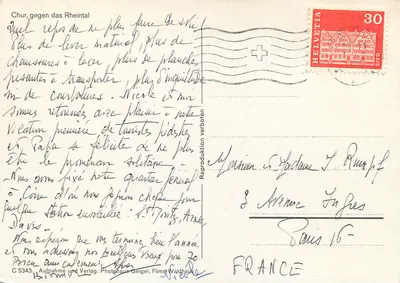 Chur, gegen das Rheintal
Quel repos de ne plus faire de ski!
Plus de lever matinal, plus de
chaussures à lacer, plus de planches
pesantes à transporter, plus d'inquiétude
ni de courbatures. Nicole et moi
sommes retournés avec plaisir à notre
vocation première de touristes pédestres
et Papa se félicite de ne plus
être le promeneur solitaire.
Nous avons fixé notre quartier général
à Coire d'où nous
quelque station : St Moritz, Arosa,
Davos.
Nous espérons que vous terminez bien l'année
et vous adressons nos meilleurs vœux pour 70
Bien amicalement
Nicole
C 5343 Aufnahme und Verlag: Photohaus Geiger, Flims Waldhaus
Reproduktion verboten
HELVETIA
30
Monsieur et Madame J.
3 Avenue Ingres
Paris 16
FRANCE